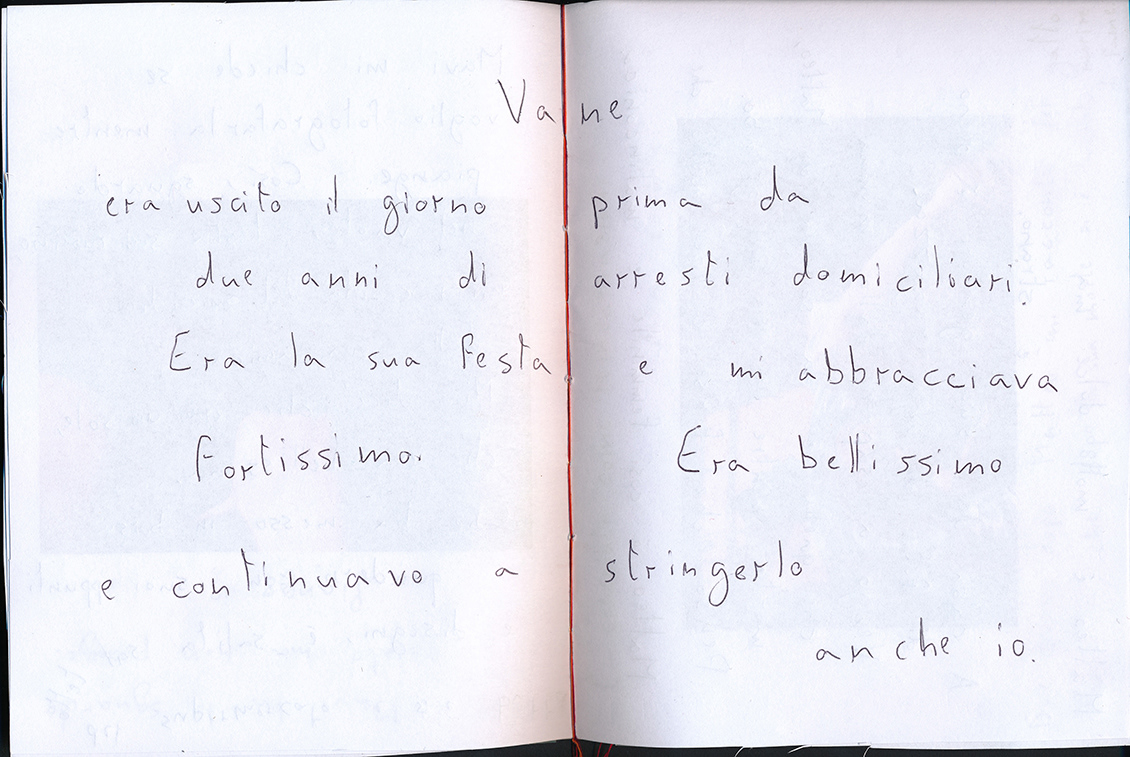 Vane
era uscito il giorno prima da
due anni di arresti domiciliari.
Era la sua festa e mi abbracciava
fortissimo. Era bellissimo
e continuavo a stringerlo
anche io.